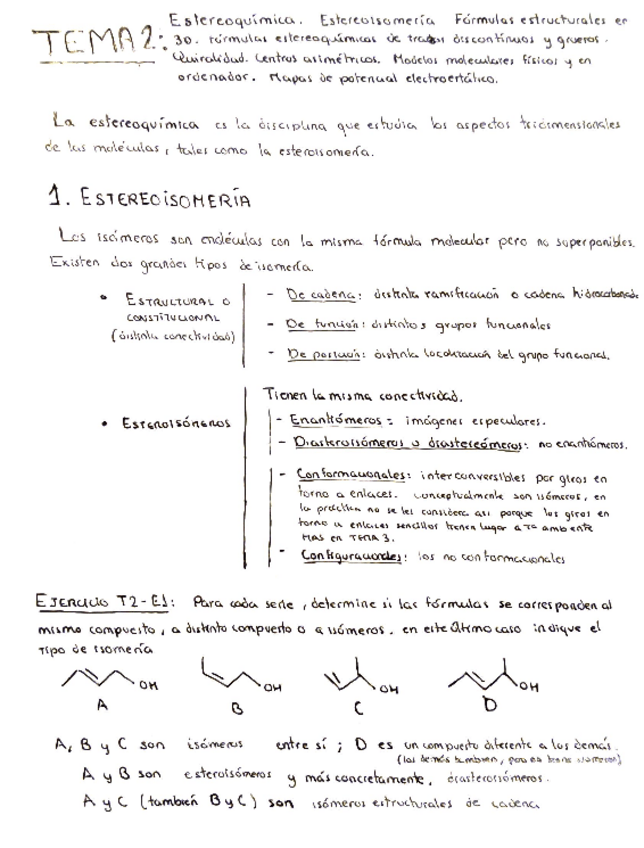 TEMA 2:
Estereoquímica. Estereoisomería Fórmulas estructurales en
3D. Fórmulas estereoquímicas de trazos discontinuos y gruesos.
Quiralidad. Centros asimétricos. Modelos moleculares físicos y en
ordenador. Mapas de potencial electroestático.
La estereoquímica es la disciplina que estudia los aspectos tridimensionales
de las moléculas, tales como la esteroisomería.
1. ESTEREOISOMERÍA
Los isómeros son moléculas con la misma fórmula molecular pero no superponibles.
Existen dos grandes tipos de isomería.
• ESTRUCTURAL O
CONSTITUCIONAL
(distinta conectividad)
- De cadena: distinta ramificación o cadena hidrocarbonada
- De función: distintos grupos funcionales
- De posición: distinta localización del grupo funcional.
• ESTEROISÓMEROS
Tienen la misma conectividad.
- Enantiómeros = imágenes especulares.
- Diasteroisómeros o diastereómeros: no enantiómeros.
- Conformacionales: interconversibles por giros en
torno a enlaces. conceptualmente son isómeros, en
la práctica no se les considera así porque los giros en
torno a enlaces sencillos tienen lugar a Tª ambiente
MAS EN TEMA 3.
- Configuracionales: los no conformacionales
EJERCICIO T2-E1: Para cada serie, determine si las fórmulas se corresponden al
mismo compuesto, a distinto compuesto o a isómeros. en este último caso indique el
tipo de isomería
OH OH OH OH
A B C D
A, B y C son isómeros entre sí; D es un compuesto diferente a los demás.
(los demás también, pero
A y B son esteroisómeros y más concretamente, diasteroisómeros.
A y C (también B y C) son isómeros estructurales de cadena